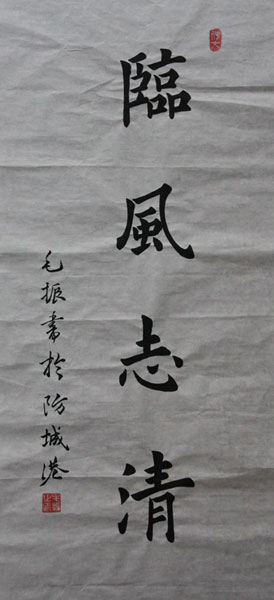 臨風志清
毛振書於防城港